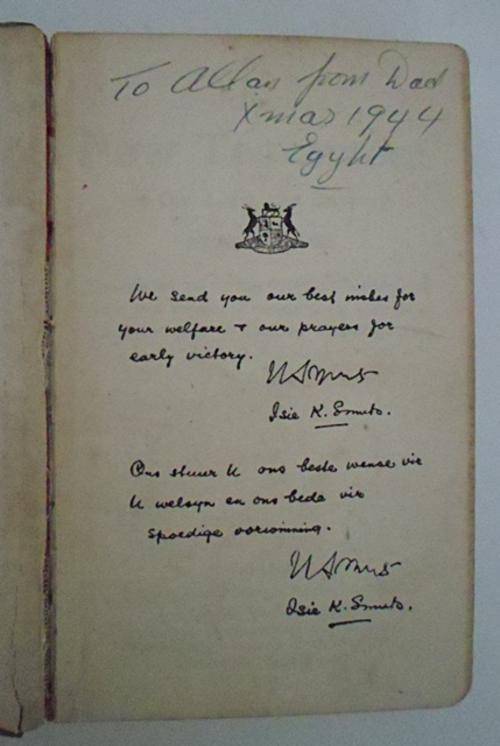 To Allan from Dad
Xmas 1944
Egypt
We send you our best wishes for
your welfare & our prayers for
early victory.
Isie K. Smuts.
Ons stuur U ons beste wense vir
U welsyn en ons bede vir
spoedige oorwinning.
Isie K. Smuts.